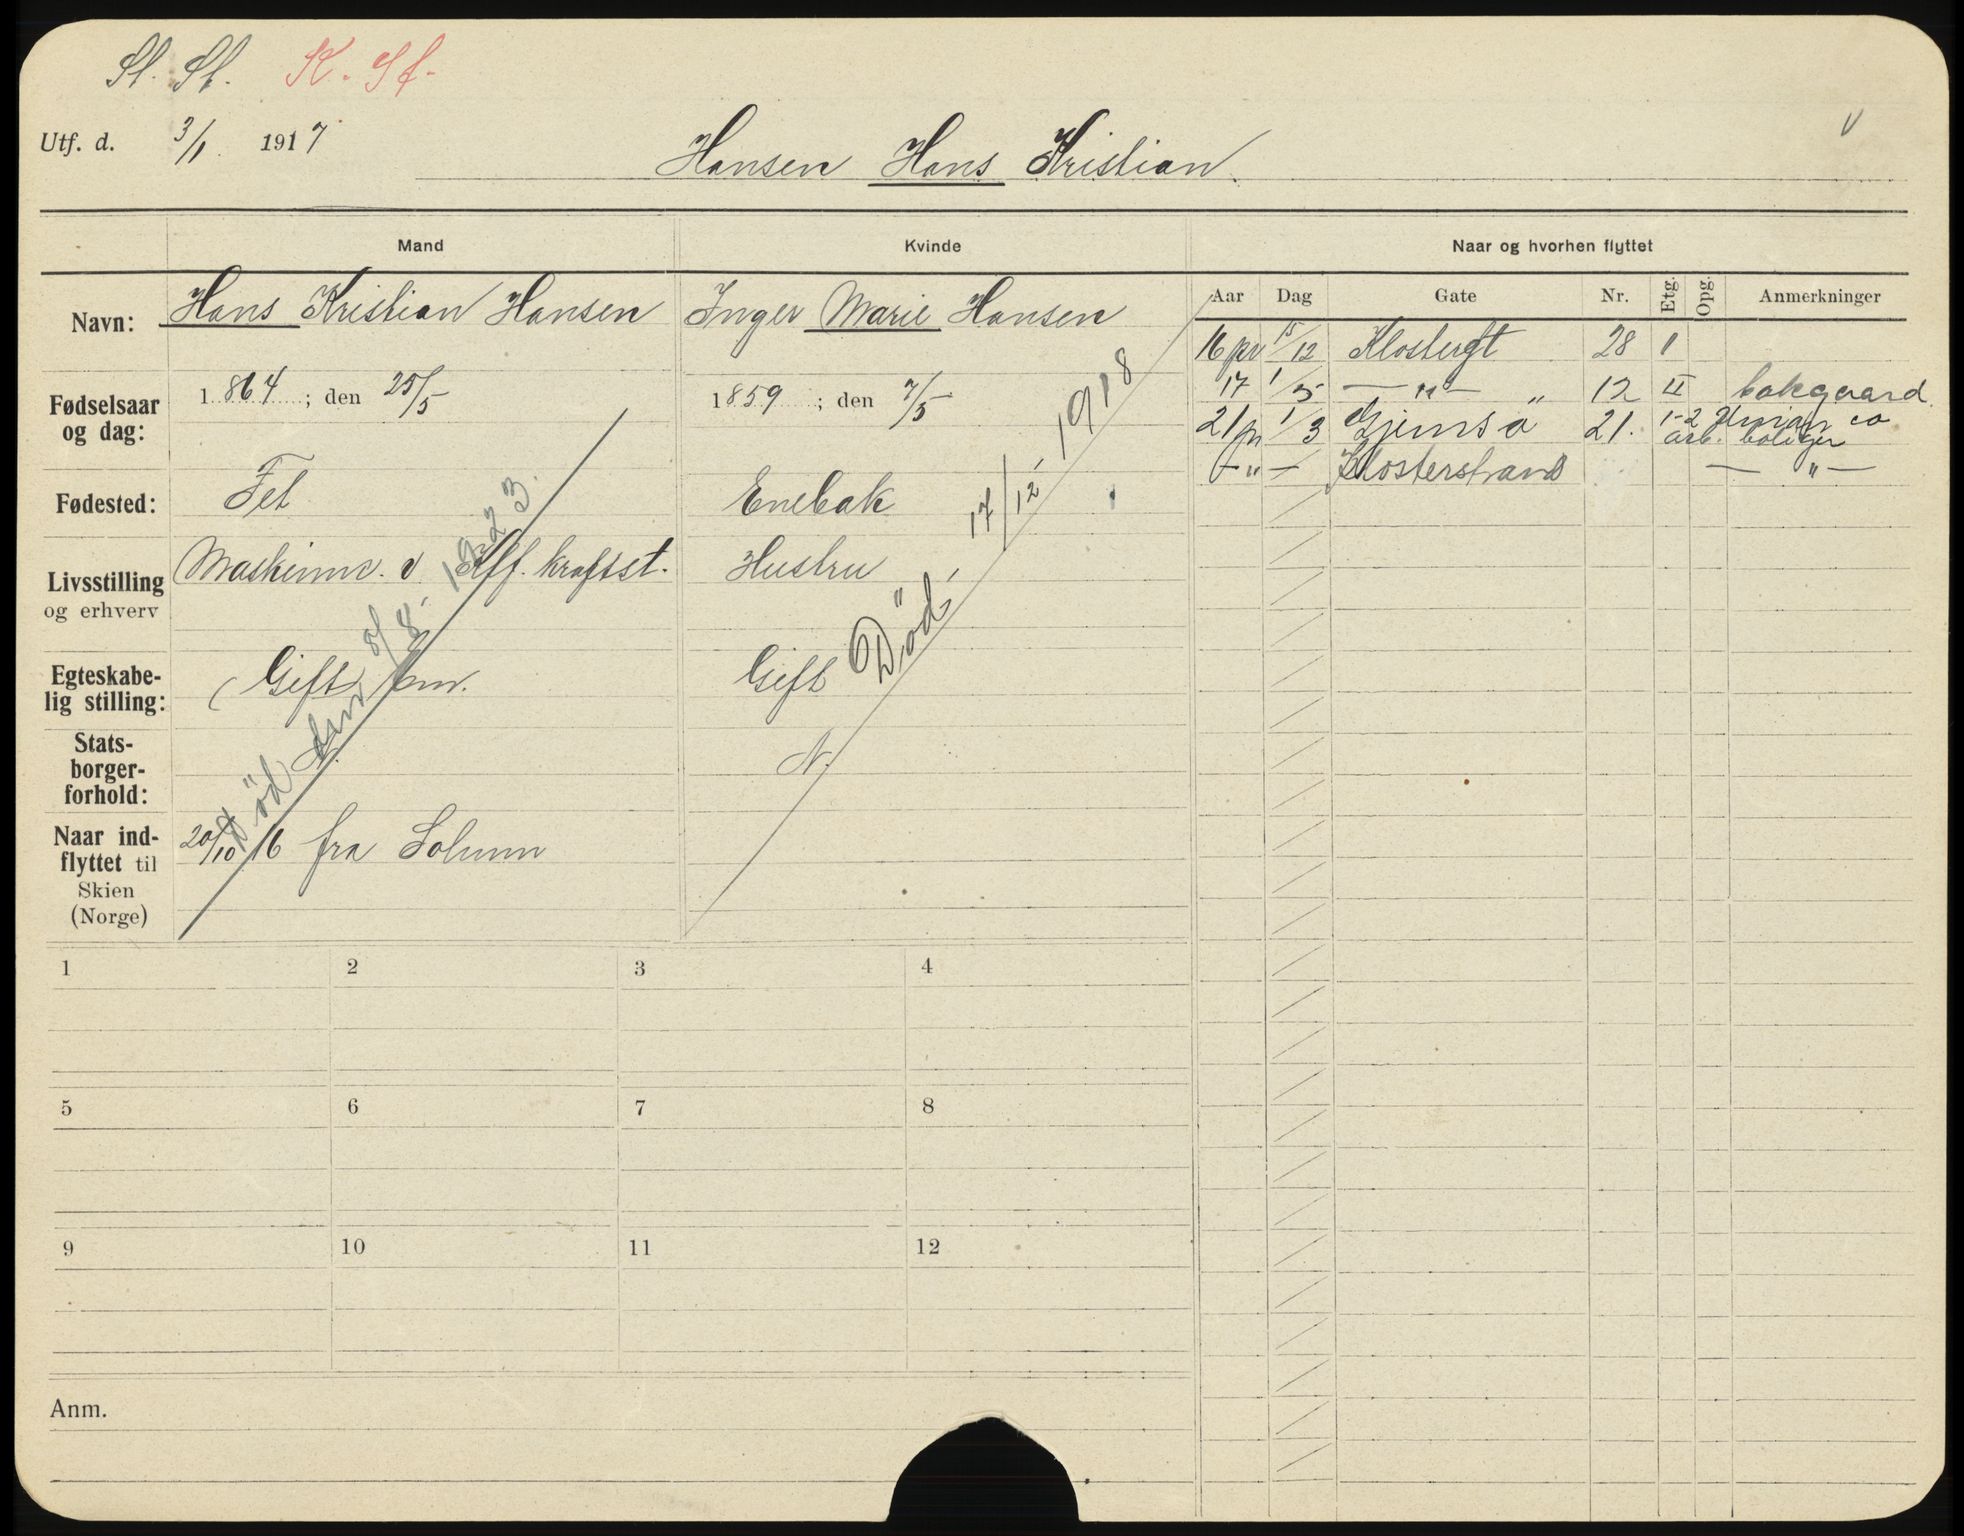 St. St. K. Sf.
Utf. d. 3/1 1917
Hansen Hans Kristian.
Mand Kvinde Naar og hvorhen flyttet
Navn: Hans Kristian Hansen Inger Marie Hansen
Aar Dag Gate Nr. Etg. Opg. Anmerkninger
16 pr 15/12 Klostergt 28 1
17 1/5 — " — 12 II bakgaard.
21 pr 1/3 Gjemsø 21. 1-2 Union co
arb. boliger
— " — Klosterstrand — " —
Fødselsaar og dag: 1864; den 25/5 1859; den 7/5
Fødested: Fet Enebak
Livsstilling og erhverv Maskinm. v. Kff. kraftst. Hustru
Egteskabelig stilling: Gift Em. Gift
Statsborgerforhold: N.
Død den 8. 1923.
Død, 17/12, 1918
Naar indflyttet til Skien (Norge) 20/10 16 fra Solum
1 2 3 4
5 6 7 8
9 10 11 12
Anm.